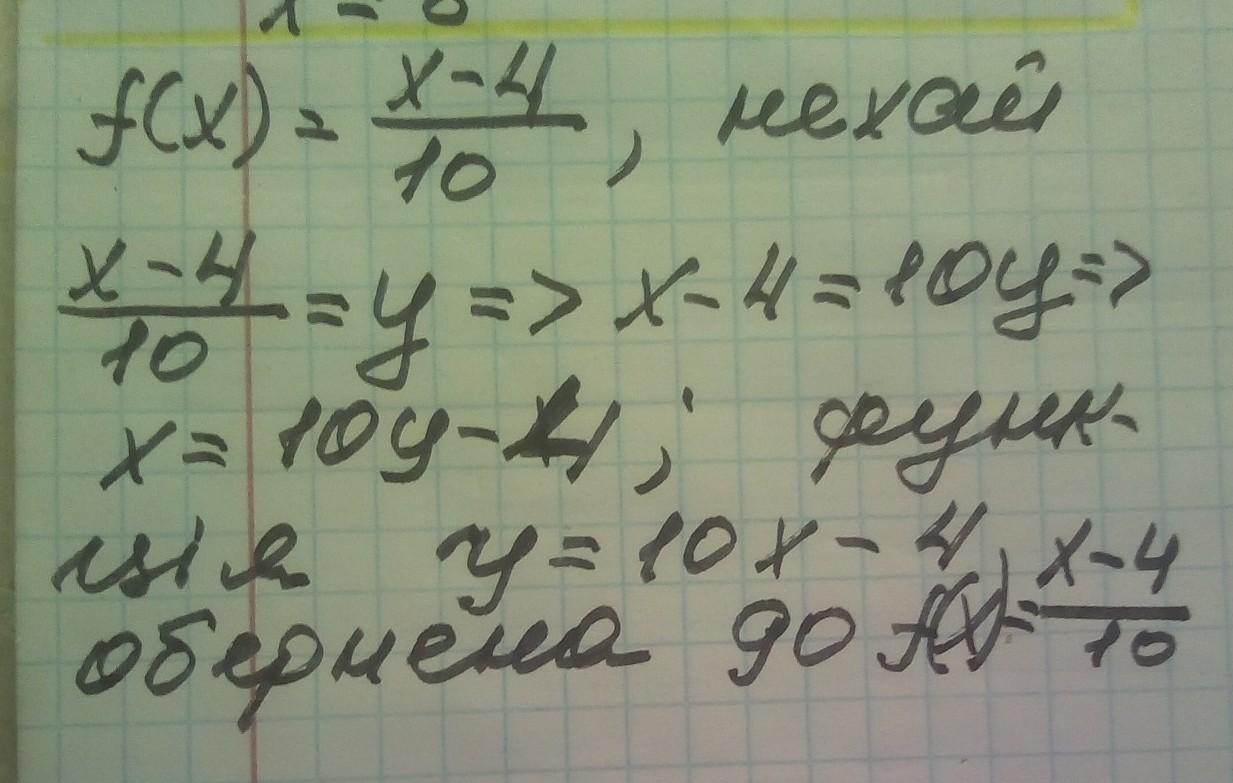 f(x) = (x-4)/10, нехай
(x-4)/10 = y => x-4 = 10y =>
x = 10y-4; функ-
ція y = 10x-4,
обернена до f(x) = (x-4)/10